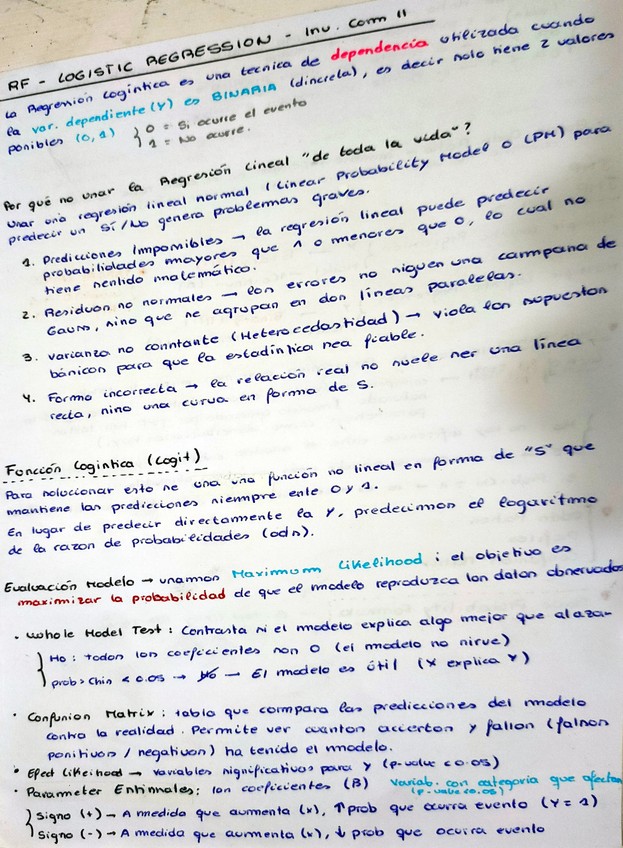 RF - LOGISTIC REGRESSION - Inv. Com II
La Regresión Logística es una tecnica de dependencia utilizada cuando
la var. dependiente (Y) es BINARIA (discreta), es decir solo tiene 2 valores
posibles (0,1) { 0 = Si ocurre el evento
1 = No ocurre.
Por qué no usar la Regresión Lineal "de toda la vida"?
Usar una regresión lineal normal (Linear Probability Model o LPM) para
predecir un Sí/No genera problemas graves.
1. Predicciones Imposibles → la regresión lineal puede predecir
probabilidades mayores que 1 o menores que 0, lo cual no
tiene sentido matemático.
2. Residuos no normales → los errores no siguen una campana de
Gauss, sino que se agrupan en dos líneas paralelas.
3. Varianza no constante (Heterocedastidad) → viola los supuestos
básicos para que la estadística sea fiable.
4. Forma incorrecta → la relación real no suele ser una línea
recta, sino una curva en forma de S.
Función Logistica (Logit)
Para solucionar esto se usa una función no lineal en forma de "S" que
mantiene las predicciones siempre ente 0 y 1.
En lugar de predecir directamente la Y, predecimos el logaritmo
de la razon de probabilidades (odds).
Evaluación Modelo → usamos Maximum Likelihood : el objetivo es
maximizar la probabilidad de que el modelo reproduzca los datos observados
• Whole Model Test : Contrasta si el modelo explica algo mejor que al azar
{ Ho : todos los coeficientes son 0 (el modelo no sirve)
prob > Chis < 0.05 → Ho → El modelo es útil (X explica Y)
• Confusion Matrix : tabla que compara las predicciones del modelo
contra la realidad. Permite ver cuantos aciertos y fallos (falsos
positivos / negativos) ha tenido el modelo.
• Efect Likeihood → variables significativas para Y (p-value < 0.05)
• Parameter Estimates : los coeficientes (B) Variab. con categoria que afectan
(p-value < 0.05)
{ Signo (+) → A medida que aumenta (x), ↑ prob que ocurra evento (Y = 1)
Signo (-) → A medida que aumenta (x), ↓ prob que ocurra evento